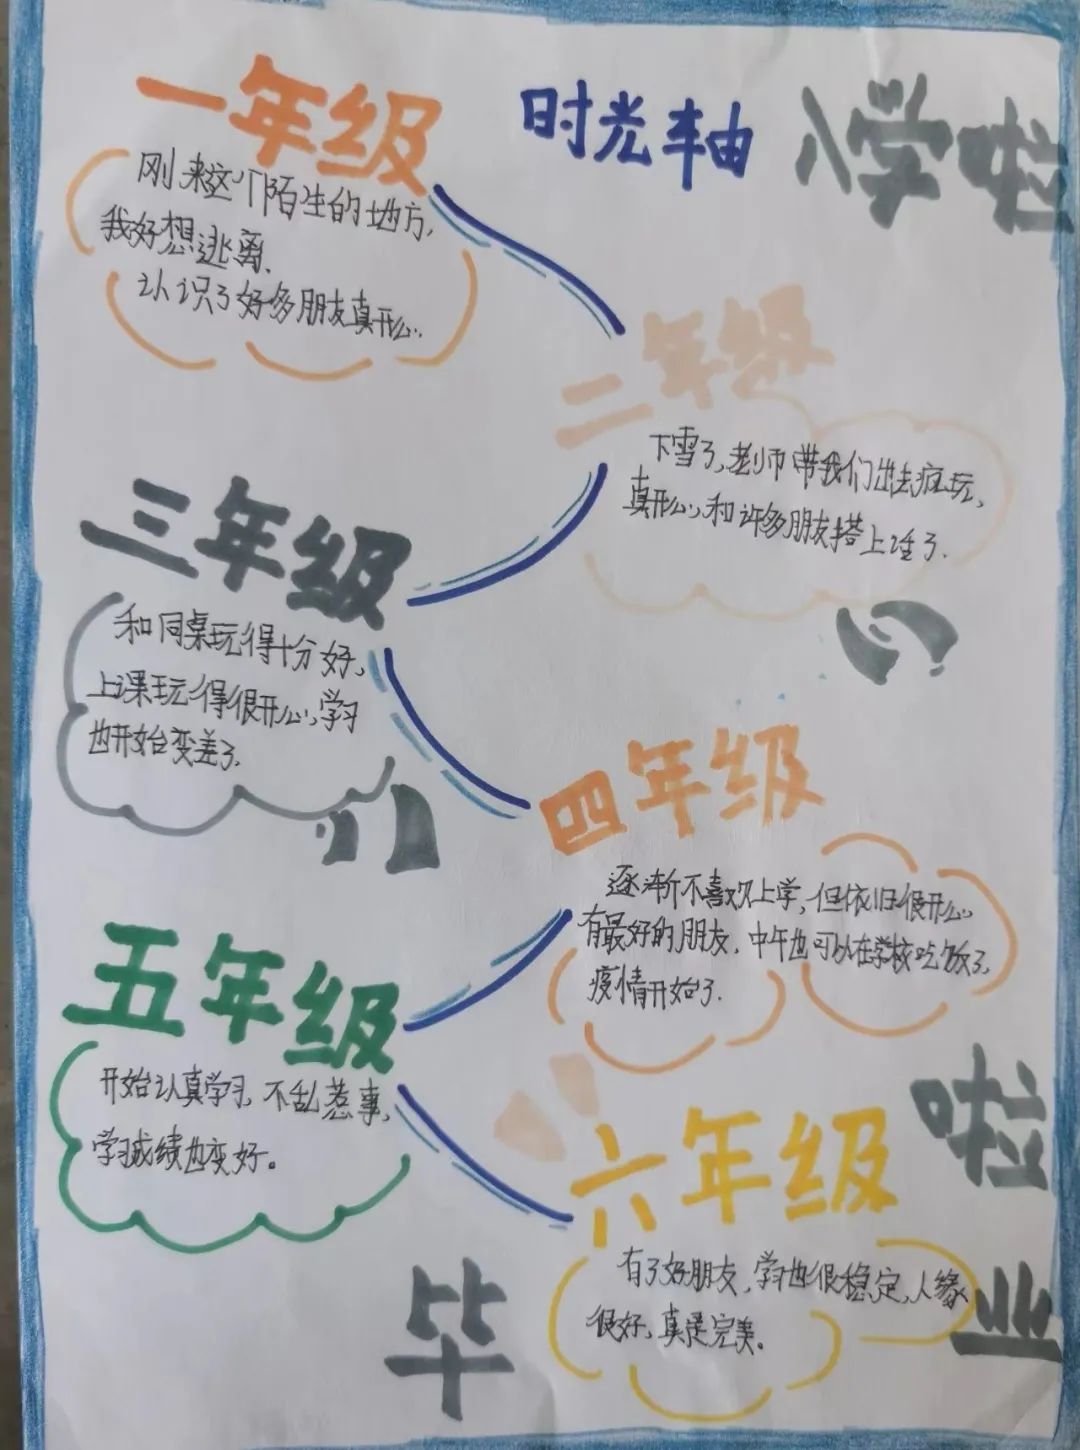 一年级
时光车由
小学
啦
刚来这个陌生的地方,
我好想逃离.
认识了好多朋友真开心.
二年级
下雪了,老师带我们出去疯玩,
真开心,和许多朋友搭上话了.
三年级
和同桌玩得十分好,
上课玩得很开心,学习
也开始变差了.
四年级
逐渐不喜欢上学,但依旧很开心
有最好的朋友.中午也可以在学校吃饭了,
疫情开始了.
五年级
开始认真学习,不乱惹事,
学习成绩也变好。
六年级
有了好朋友,学习也很稳定,人缘
很好,真是完美。
啦
毕
业